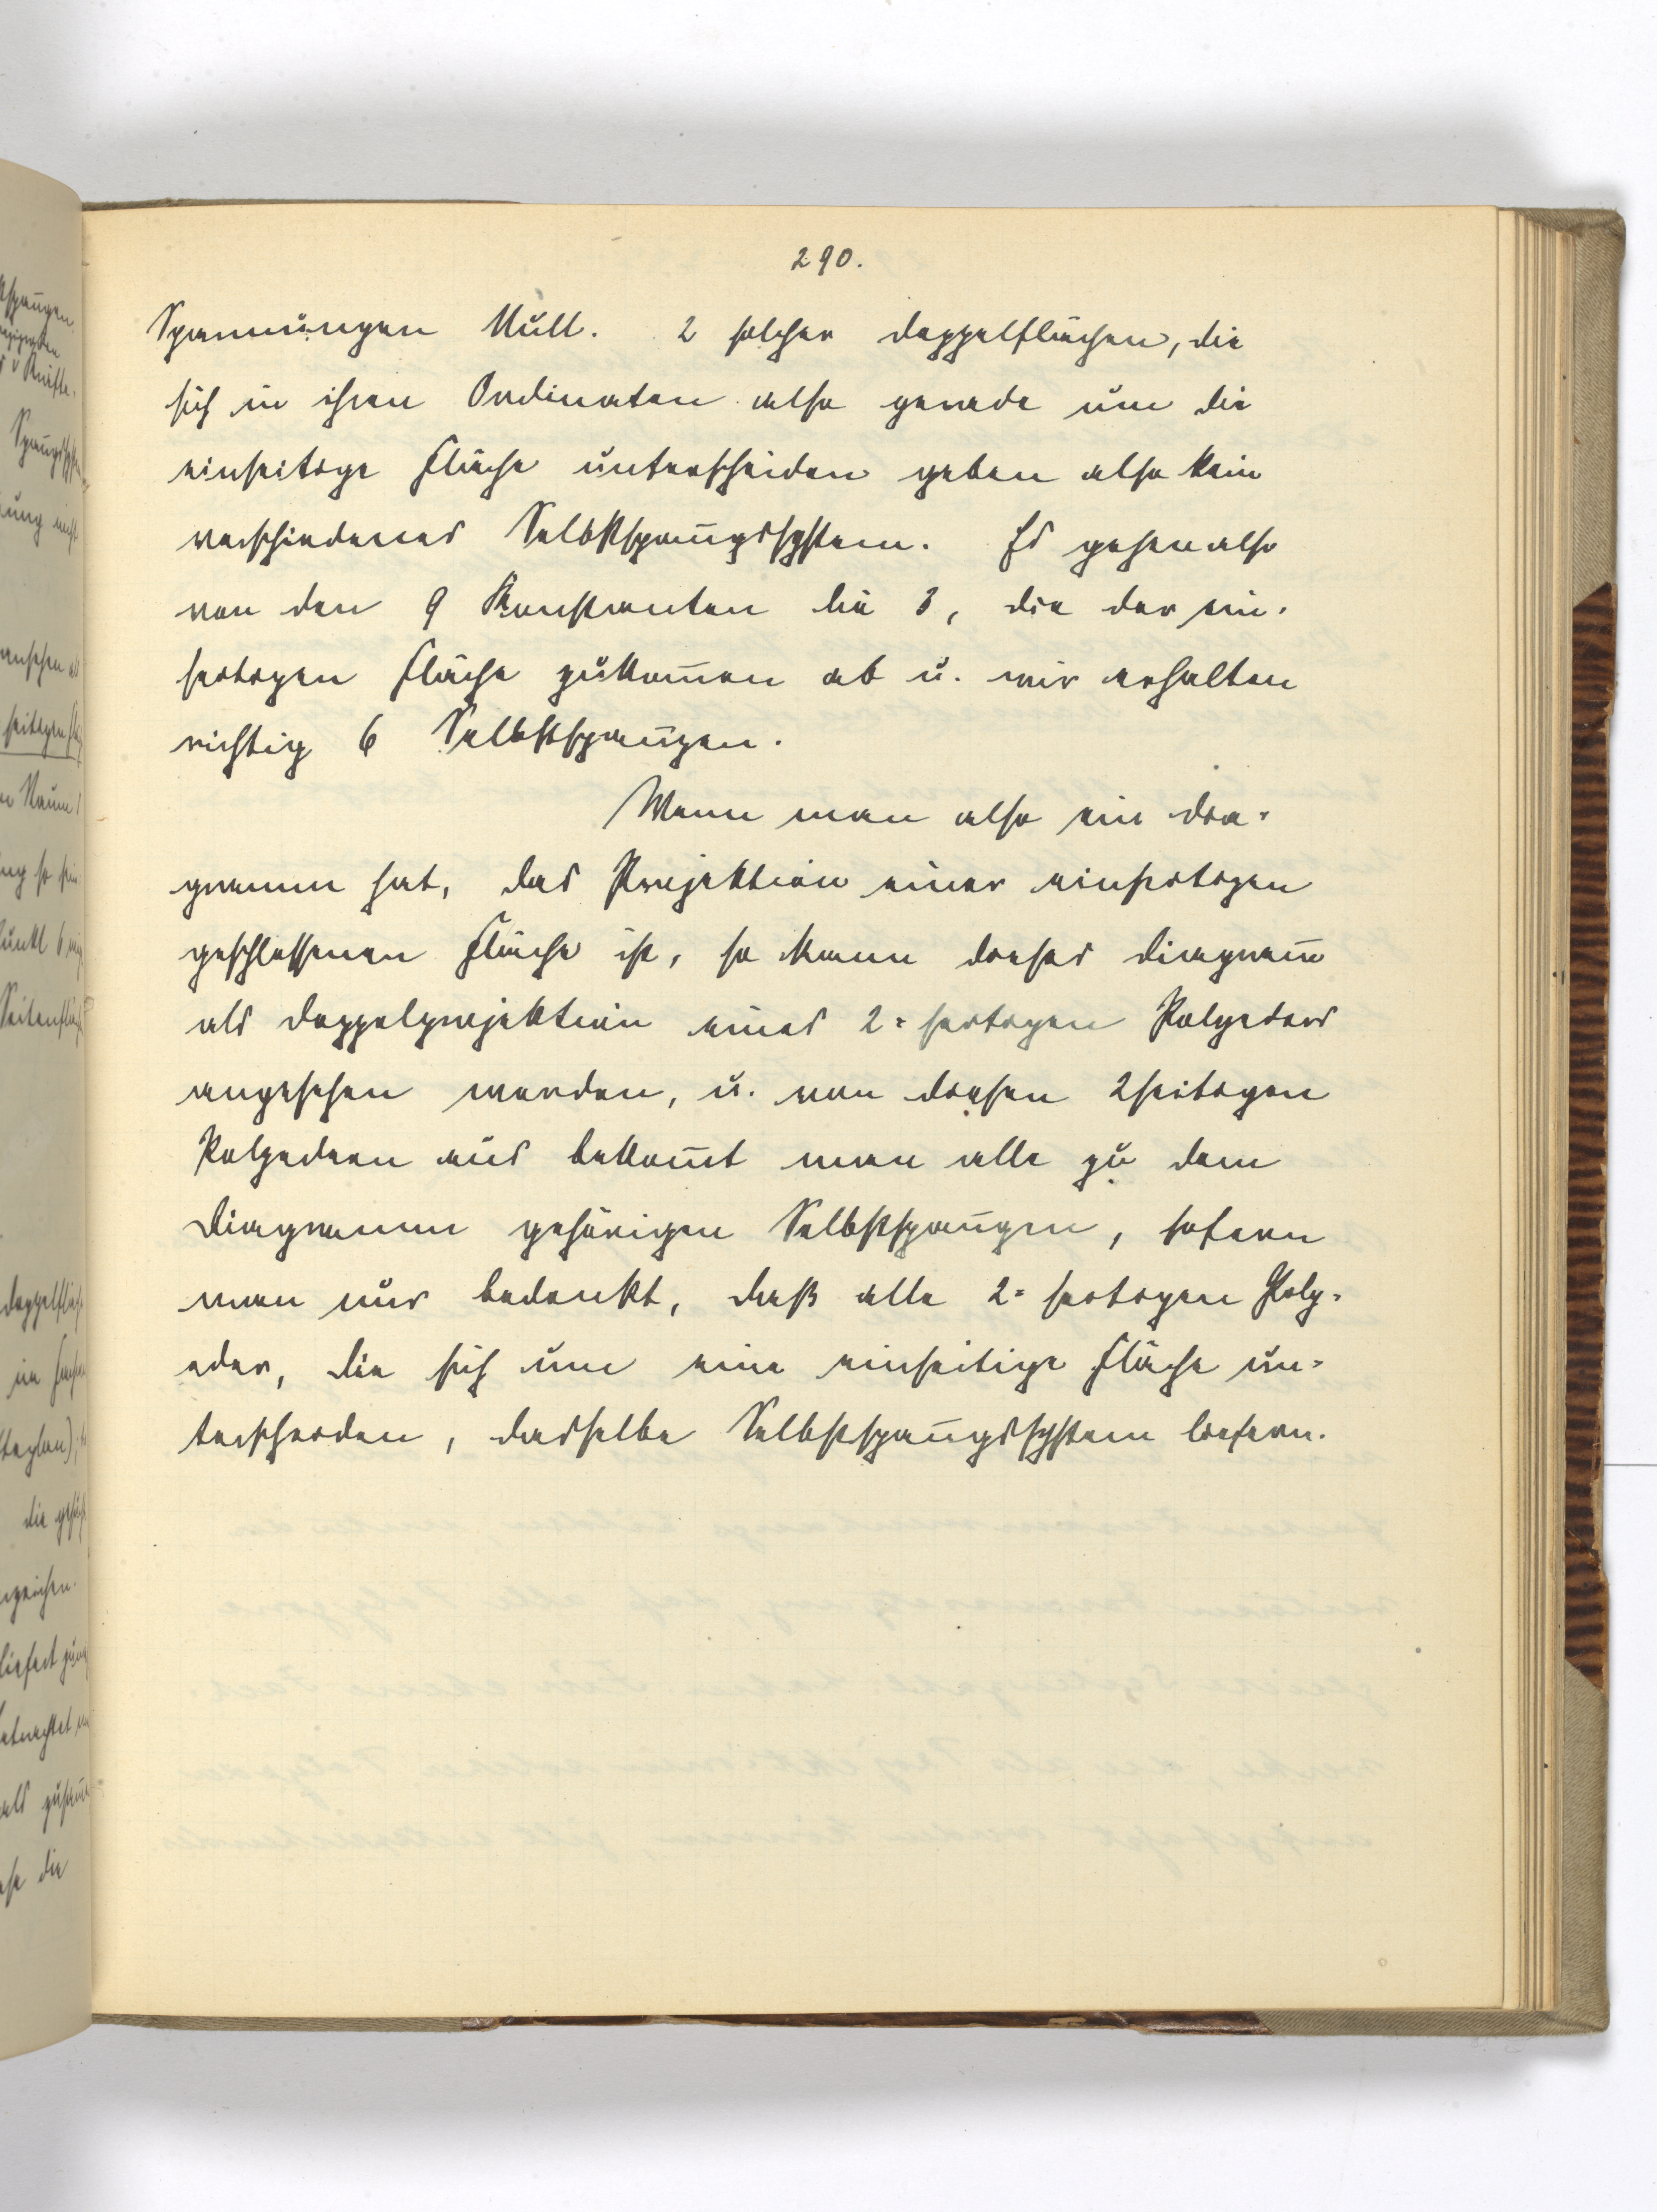 290.
Spannungen Null. 2 solcher Doppelflächen, die
sich in ihren Ordinaten also gerade um die
einseitige Fläche unterscheiden geben also kein
verschiedenes Selbstspan̅ungssystem. Es gehen also
von den 9 Konstanten die 3, die der ein-
seitigen Fläche zukom̅en ab u. wir erhalten
richtig 6 Selbstspan̅ungen.
Wenn man also ein Dia-
gramm hat, das Projektion einer einseitigen
geschlossenen Fläche ist, so kann dieses Diagram̅
als Doppelprojektion eines 2-seitigen Polyeders
angesehen werden, u. von diesen 2seitigen
Polyedern aus bekom̅t man alle zu dem
Diagramm gehörigen Selbstspan̅ungen, sofern
man nur bedenkt, daß alle 2-seitigen Poly-
eder, die sich um eine einseitige Fläche un-
terscheiden, dasselbe Selbstspan̅ungssystem liefern.